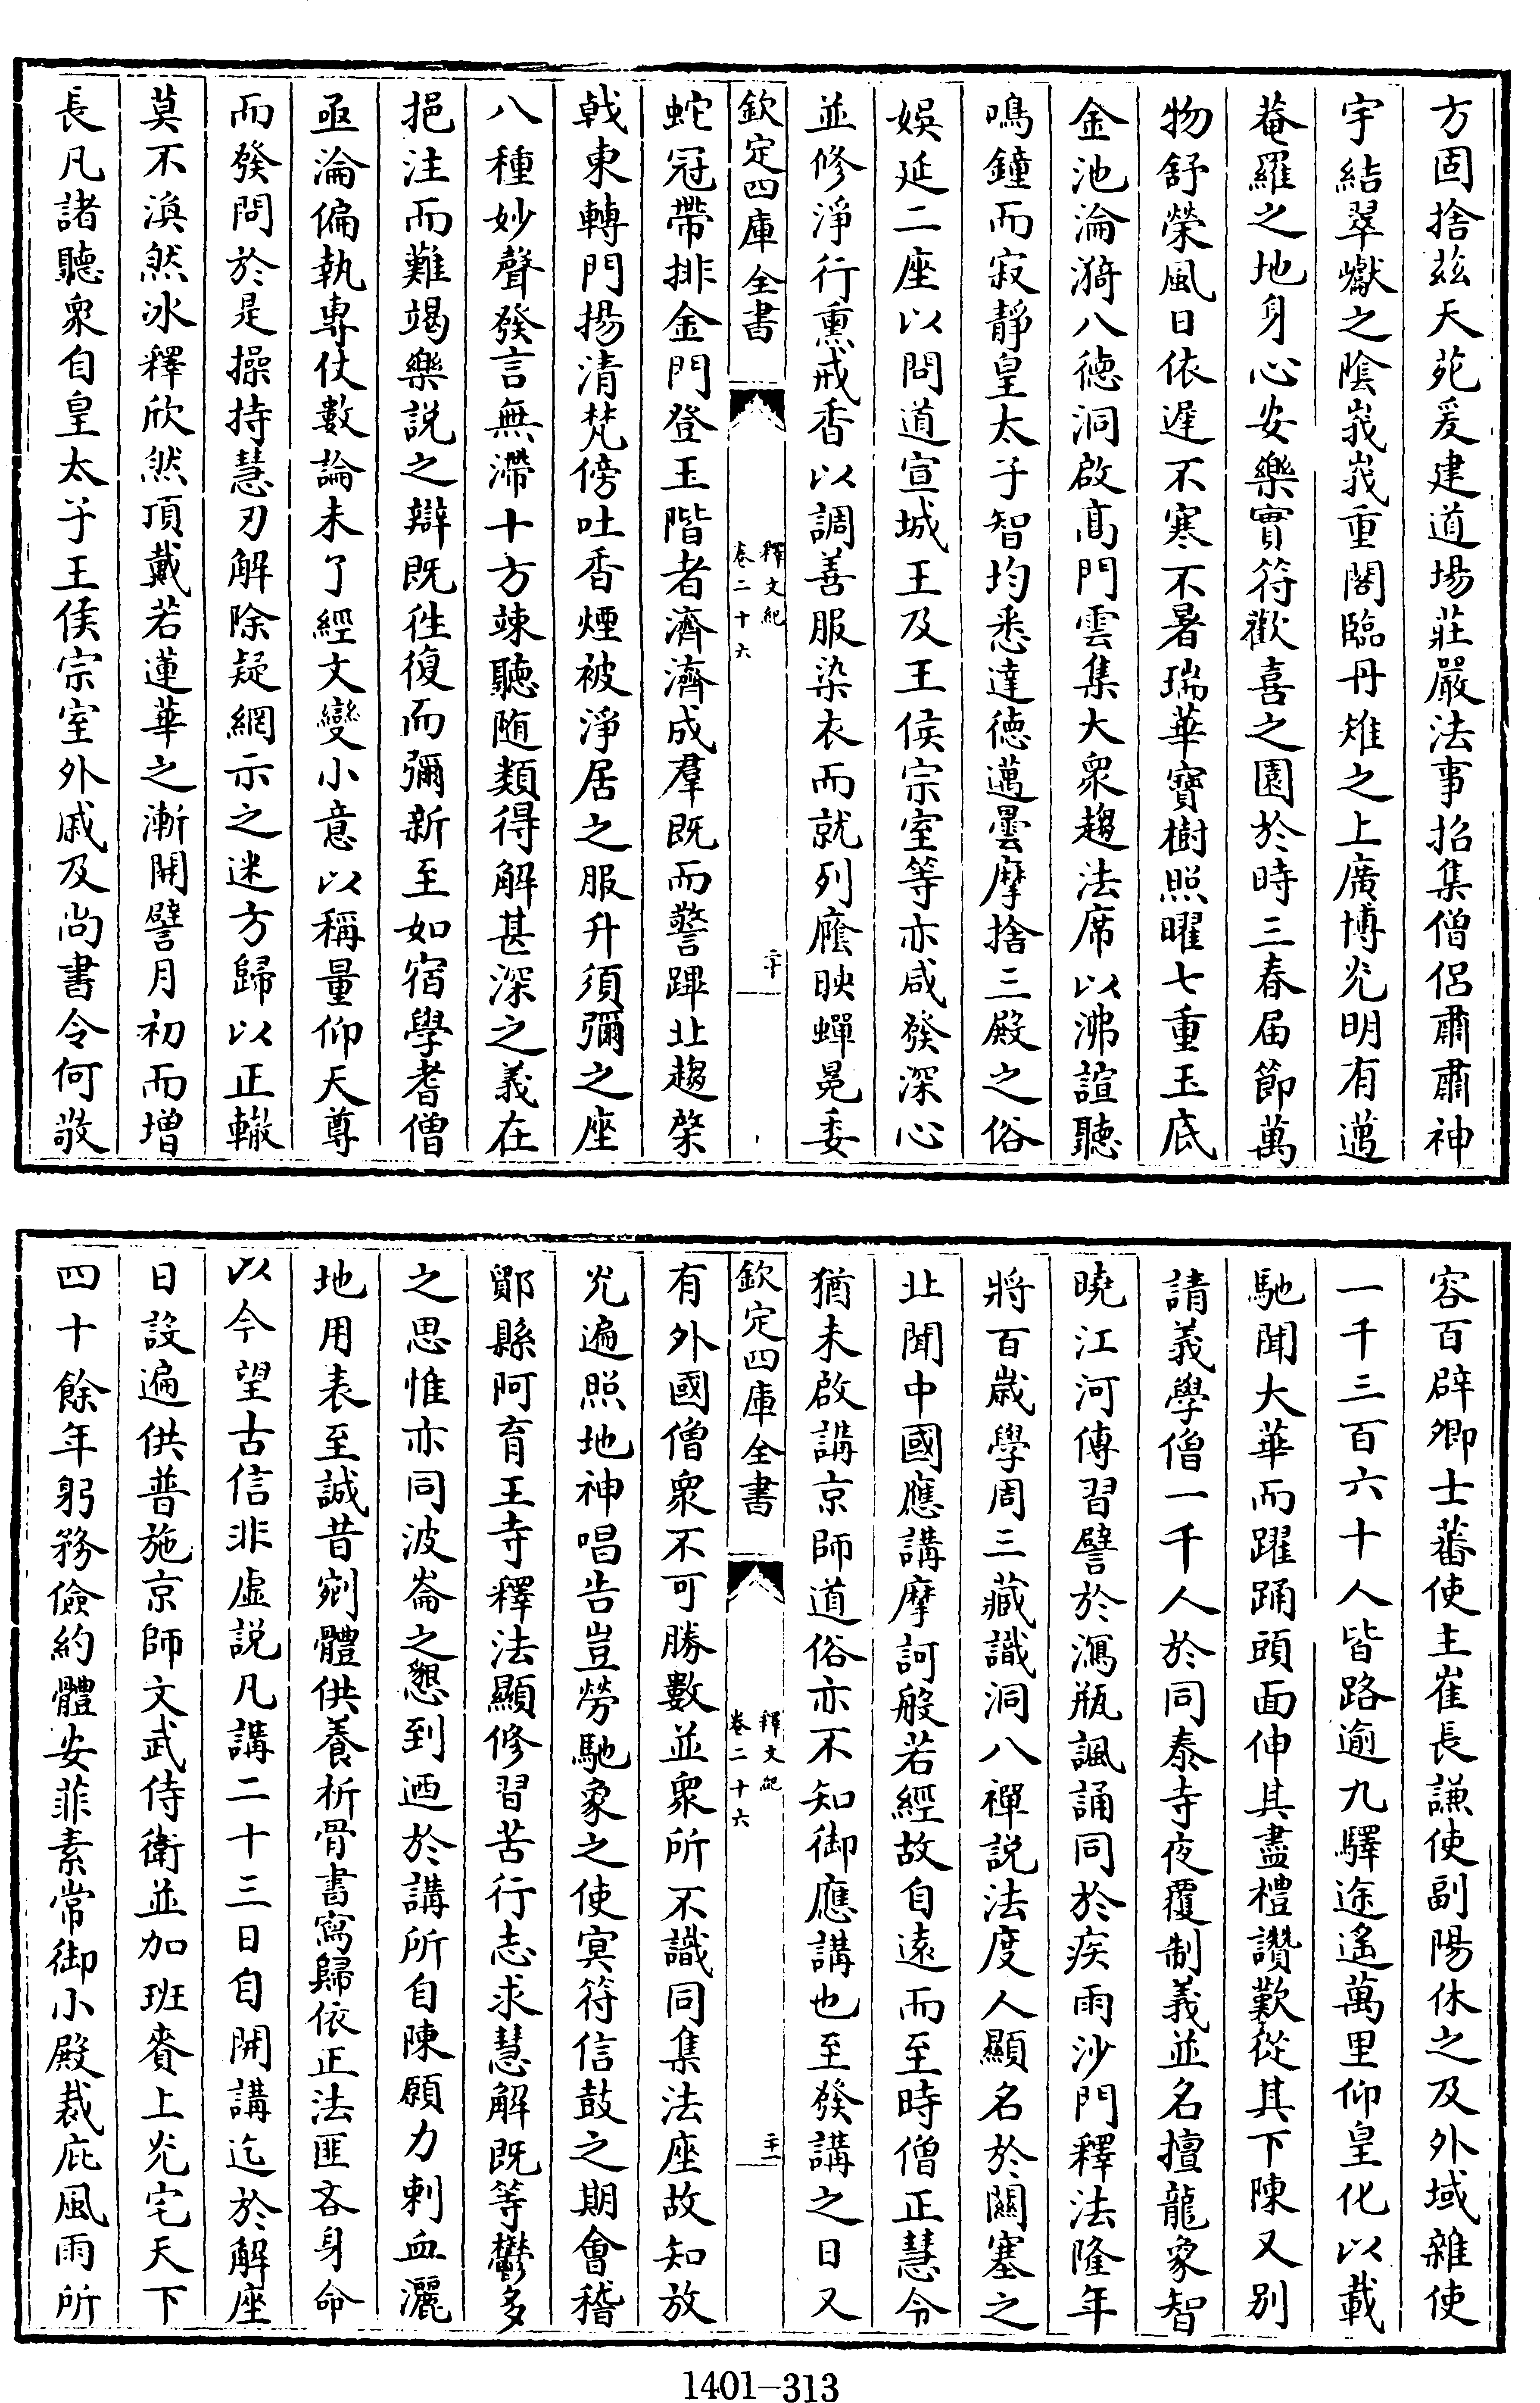 方固捨茲天苑爰建道場莊嚴法事招集僧侶肅肅神
宇結翠巘之陰峩峩重閣臨丹雉之上廣博光明有邁
菴羅之地身心安樂實符歡喜之園於時三春届節萬
物舒榮風日依遲不寒不暑瑞華寶樹照曜七重玉底
金池淪漪八徳洞啟髙門雲集大衆趨法席以沸諠聽
鳴鐘而寂靜皇太子智均悉達徳邁曇摩捨三殿之俗
娯延二座以問道宣城王及王侯宗室等亦咸發深心
並修淨行熏戒香以調善服染衣而就列廕映蟬冕委
欽定四庫全書
釋文紀
卷二十六
二十
蛇冠帶排金門登玉階者濟濟成羣既而警蹕北趨棨
㦸東轉門揚清梵傍吐香煙被淨居之服升須彌之座
八種妙聲發言無滯十方竦聽隨類得解甚深之義在
挹注而難竭樂説之辯既徃復而彌新至如宿學耆僧
亟淪偏執專仗數論未了經文變小意以稱量仰天尊
而發問於是操持慧刃解除疑網示之迷方歸以正轍
莫不渙然冰釋欣然頂戴若蓮華之漸開譬月初而增
長凡諸聽衆自皇太子王侯宗室外戚及尚書令何敬
容百辟卿士蕃使主崔長謙使副陽休之及外域雜使
一千三百六十人皆路逾九驛途遙萬里仰皇化以載
馳聞大華而躍踊頭面伸其盡禮讚歎從其下陳又别
請義學僧一千人於同泰寺夜覆制義並名擅龍象智
曉江河傳習譬於瀉瓶諷誦同於疾雨沙門釋法隆年
將百嵗學周三藏識洞八禪説法度人顯名於關塞之
北聞中國應講摩訶般若經故自逺而至時僧正慧令
猶未啟講京師道俗亦不知御應講也至發講之日又
欽定四庫全書
釋文紀
卷二十六
二十一
有外國僧衆不可勝數並衆所不識同集法座故知放
光遍照地神唱告豈勞馳象之使冥符信鼓之期會稽
鄮縣阿育王寺釋法顯修習苦行志求慧解既等鬱多
之思惟亦同波崙之懇到迺於講所自陳願力刺血灑
地用表至誠昔剜體供養析骨書寫歸依正法匪吝身命
以今望古信非虚説凡講二十三日自開講迄於解座
日設遍供普施京師文武侍衛並加班賚上光宅天下
四十餘年躬務儉約體安菲素常御小殿裁庇風雨所
1401-313